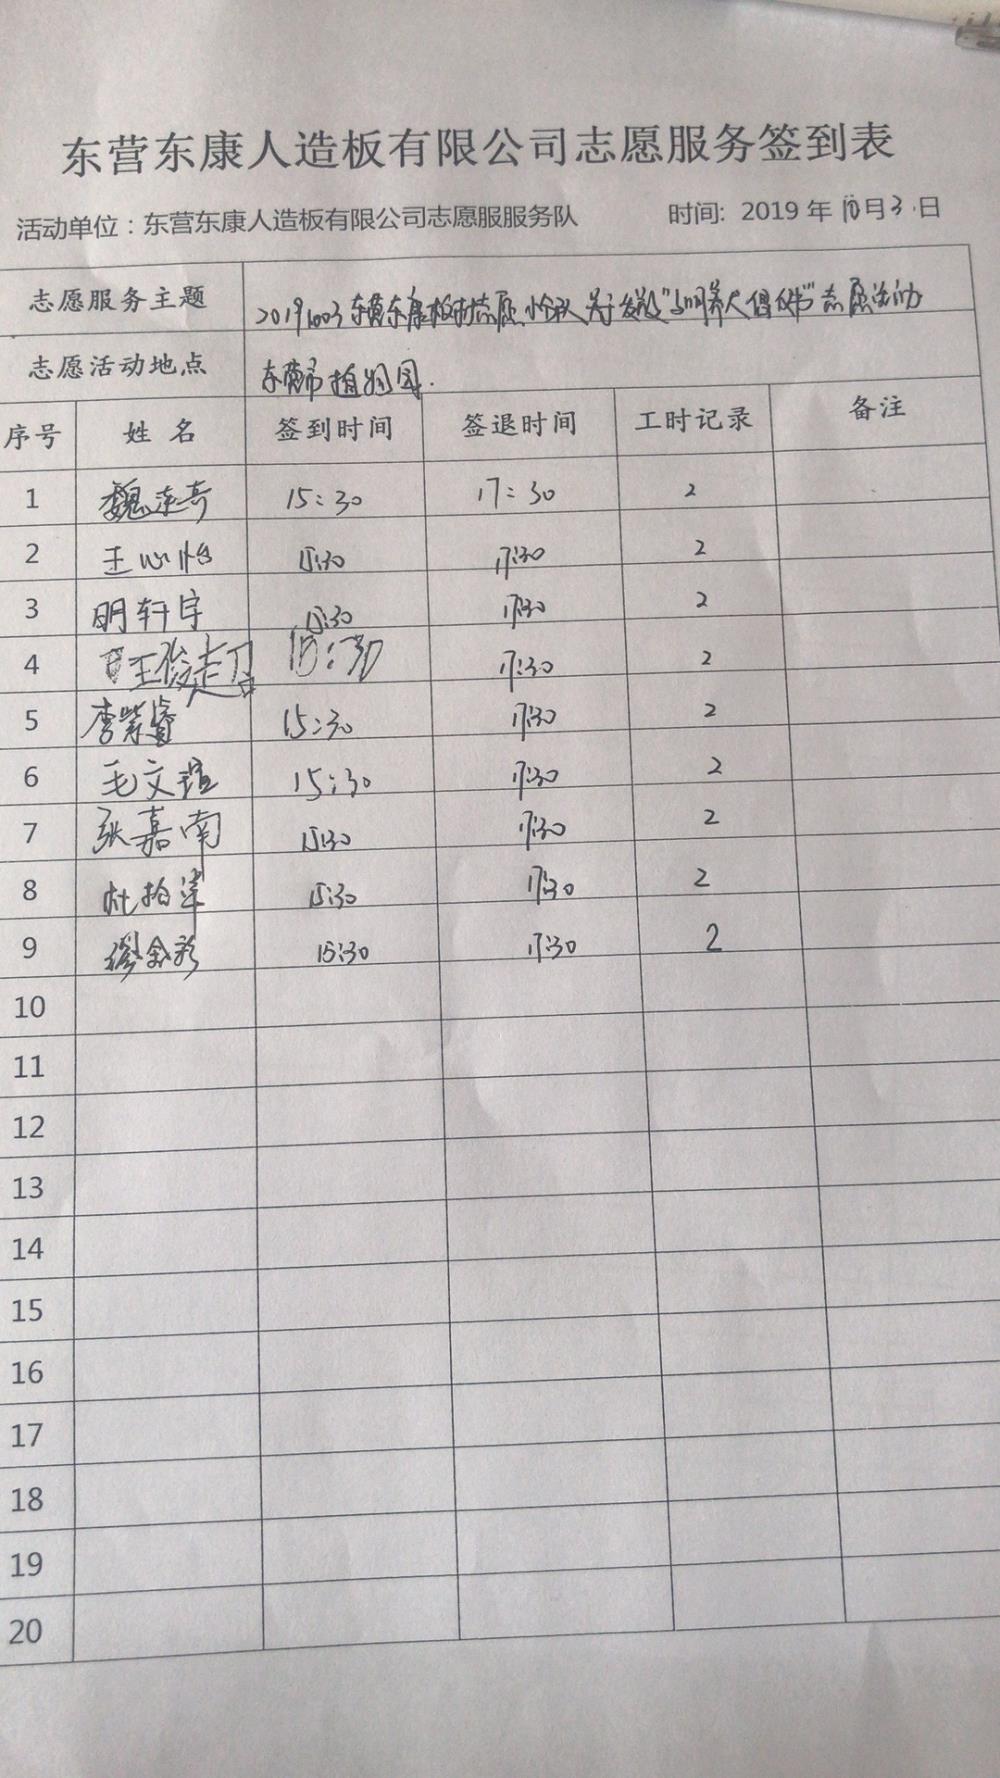 东营东康人造板有限公司志愿服务签到表
活动单位：东营东康人造板有限公司志愿服服务队 时间: 2019 年 10 月 3 日
志愿服务主题 20191003东营东康板材志愿小分队关于发放"文明养犬倡议书"志愿活动
志愿活动地点 东营市植物园.
序号 姓名 签到时间 签退时间 工时记录 备注
1 15:30 17:30 2
2 王心怡 15:30 17:30 2
3 明轩宇 15:30 17:30 2
4 15:30 17:30 2
5 李紫睿 15:30 17:30 2
6 毛文瑄 15:30 17:30 2
7 张嘉南 15:30 17:30 2
8 15:30 17:30 2
9 15:30 17:30 2
10
11
12
13
14
15
16
17
18
19
20